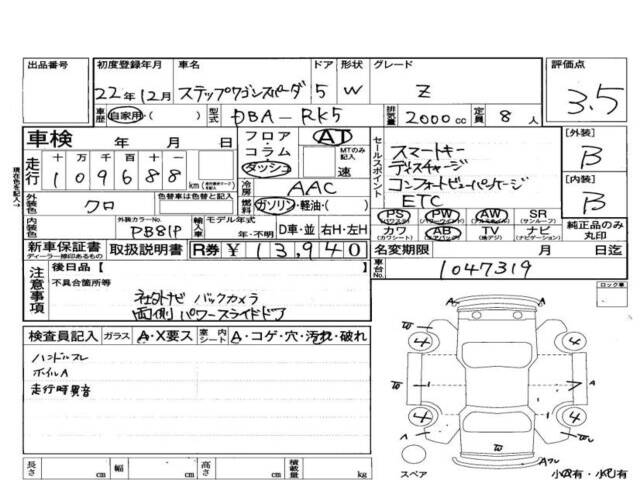 出品番号 初度登録年月 車名 ドア 形状 グレード 評価点
22年12月 ステップワゴンスパーダ 5 W Z 3.5
車歴 自家用・( ) 型式 DBA-RK5 排気量 2000cc 定員 8人
車検 年 月 日
フロア・コラム・ダッシュ AT MTのみ記入 速
セールスポイント
スマートキー
ディスチャージ
コンフォートビューパッケージ
ETC
[外装] B
[内装] B
走行 十 万 千 百 十 一
109688 km
現在色を記入→
外装色 クロ 色替車は色替と記入
冷房 AAC
燃料 ガソリン・軽油・( )
PS (パワステ) PW (パワーウインド) AW (アルミホイル) SR (サンルーフ)
カワ (カワシート) AB (エアバッグ) TV (地デジ) ナビ (ナビゲーション)
純正品のみ丸印
内装色 外装カラーNo. PB81P 輸入車 モデル年式 年・不明 D車・並 右H・左H
新車保証書 ディーラー捺印あるもの 取扱説明書 R券 ¥13,940
名変期限 月 日迄
車台No. 1047319
注意事項 後日品【 】
不具合箇所等
社外ナビ バックカメラ
両側パワースライドドア
ロック車
検査員記入 ガラス A・X要ス 室内シート A・コゲ・穴・汚れ・破れ
ハンドルスレ
ホイルA
走行時異音
4 4
A
4 4
A
W
スペア 小A有・小凹有
長さ cm 幅 cm 高さ cm 積載量 kg